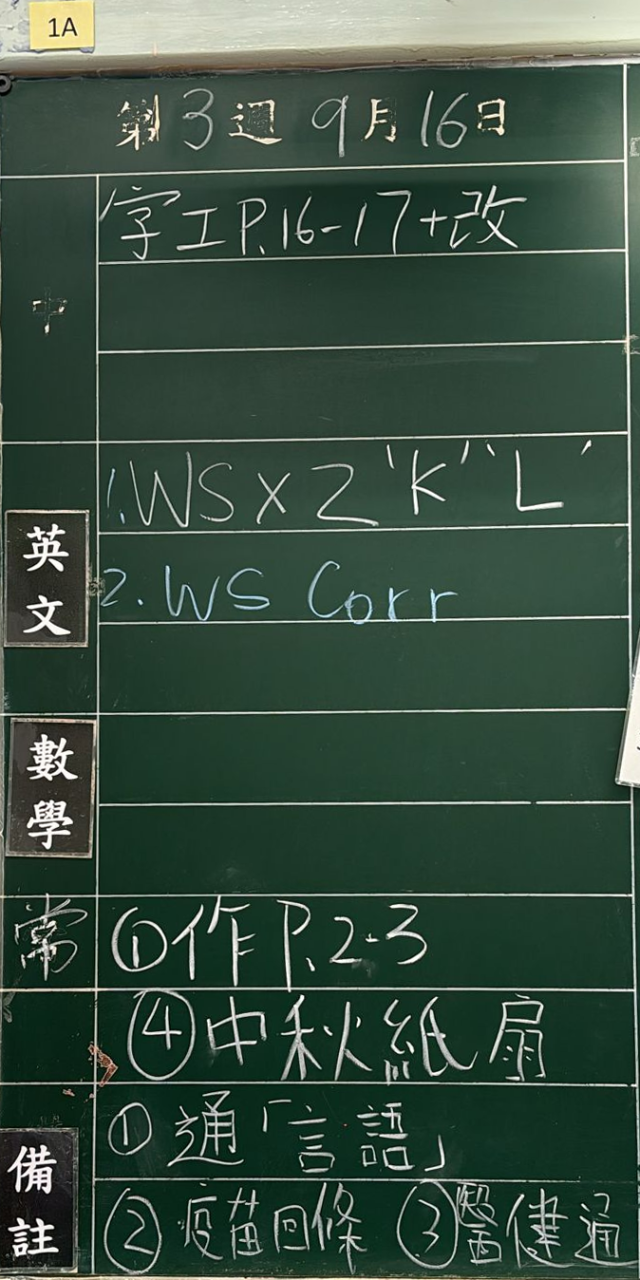 1A
第3週 9月16日
中
字工P.16-17+改
英文
1.WS×2 'K' 'L'
2. WS Corr
數學
常
①作P.2-3
④中秋紙扇
備註
①通「言語」
②疫苗回條 ③醫健通